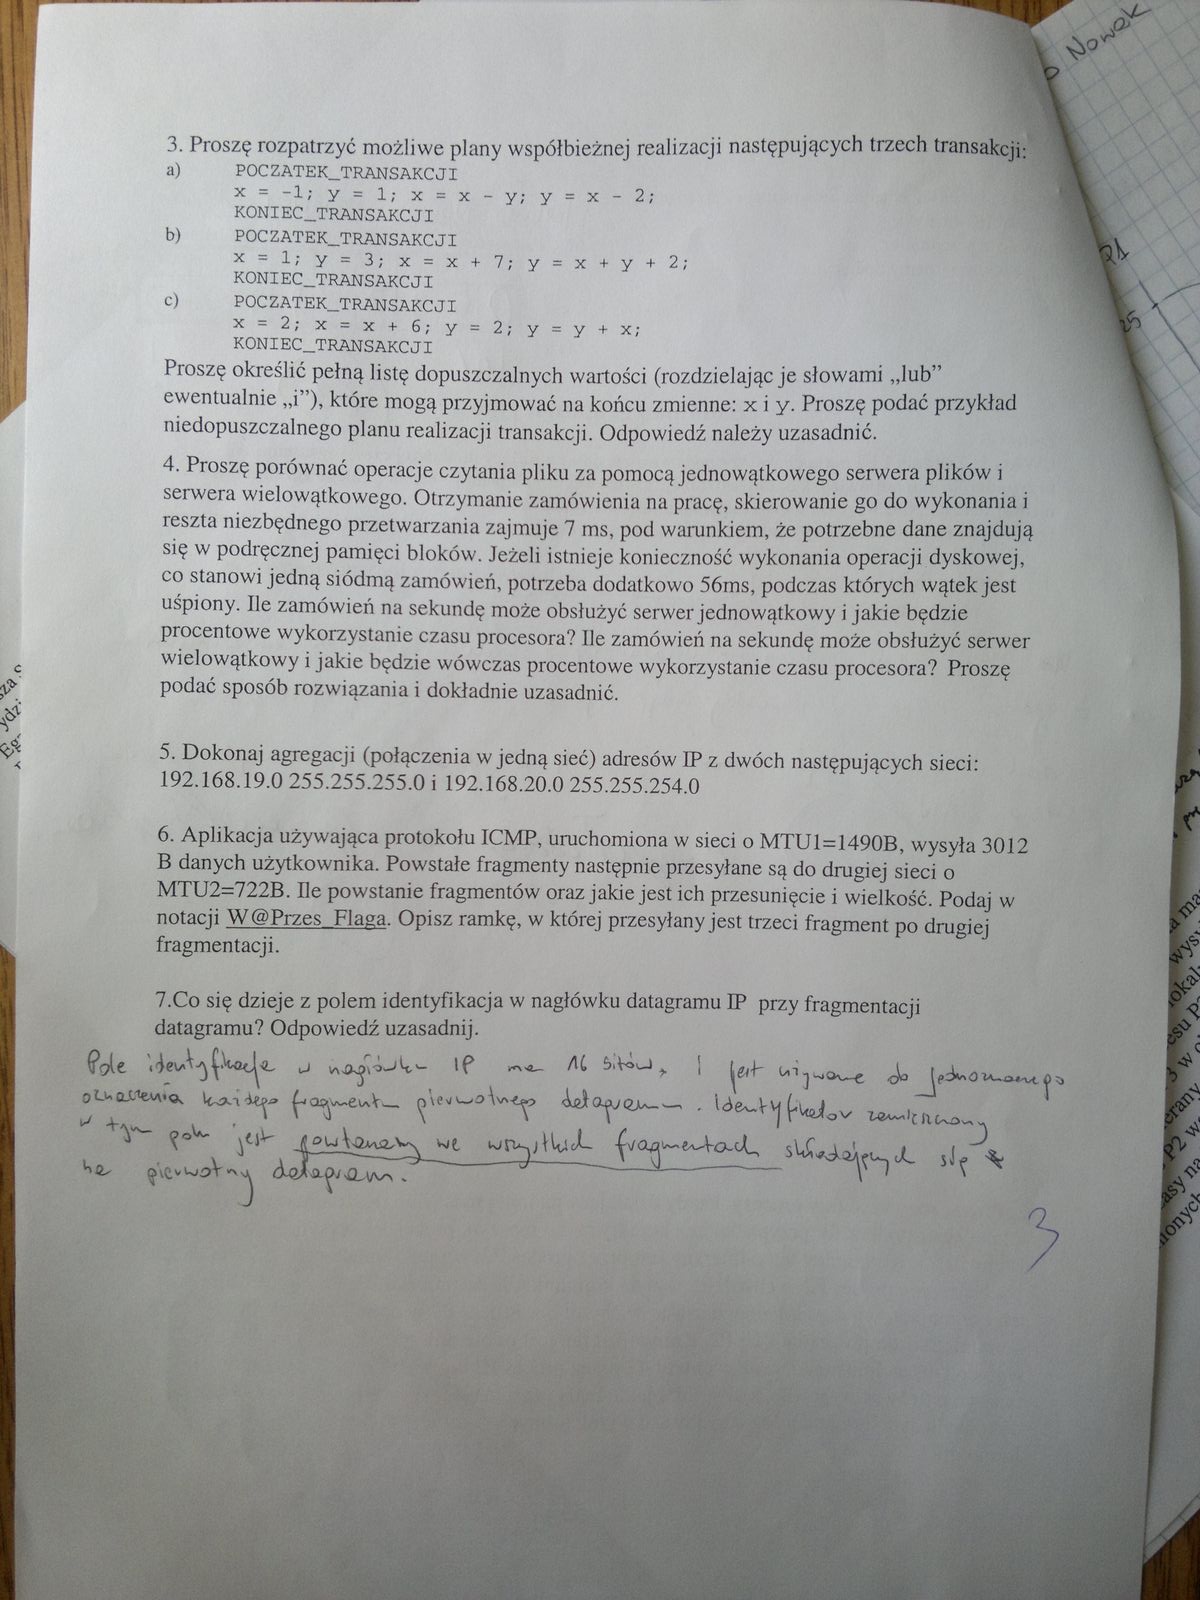 o Nowak
3. Proszę rozpatrzyć możliwe plany współbieżnej realizacji następujących trzech transakcji:
a) POCZATEK_TRANSAKCJI
x = -1; y = 1; x = x - y; y = x - 2;
KONIEC_TRANSAKCJI
b) POCZATEK_TRANSAKCJI
x = 1; y = 3; x = x + 7; y = x + y + 2;
KONIEC_TRANSAKCJI
c) POCZATEK_TRANSAKCJI
x = 2; x = x + 6; y = 2; y = y + x;
KONIEC_TRANSAKCJI
Proszę określić pełną listę dopuszczalnych wartości (rozdzielając je słowami „lub”
ewentualnie „i”), które mogą przyjmować na końcu zmienne: x i y. Proszę podać przykład
niedopuszczalnego planu realizacji transakcji. Odpowiedź należy uzasadnić.
4. Proszę porównać operacje czytania pliku za pomocą jednowątkowego serwera plików i
serwera wielowątkowego. Otrzymanie zamówienia na pracę, skierowanie go do wykonania i
reszta niezbędnego przetwarzania zajmuje 7 ms, pod warunkiem, że potrzebne dane znajdują
się w podręcznej pamięci bloków. Jeżeli istnieje konieczność wykonania operacji dyskowej,
co stanowi jedną siódmą zamówień, potrzeba dodatkowo 56ms, podczas których wątek jest
uśpiony. Ile zamówień na sekundę może obsłużyć serwer jednowątkowy i jakie będzie
procentowe wykorzystanie czasu procesora? Ile zamówień na sekundę może obsłużyć serwer
wielowątkowy i jakie będzie wówczas procentowe wykorzystanie czasu procesora? Proszę
podać sposób rozwiązania i dokładnie uzasadnić.
5. Dokonaj agregacji (połączenia w jedną sieć) adresów IP z dwóch następujących sieci:
192.168.19.0 255.255.255.0 i 192.168.20.0 255.255.254.0
6. Aplikacja używająca protokołu ICMP, uruchomiona w sieci o MTU1=1490B, wysyła 3012
B danych użytkownika. Powstałe fragmenty następnie przesyłane są do drugiej sieci o
MTU2=722B. Ile powstanie fragmentów oraz jakie jest ich przesunięcie i wielkość. Podaj w
notacji W@Przes_Flaga. Opisz ramkę, w której przesyłany jest trzeci fragment po drugiej
fragmentacji.
7.Co się dzieje z polem identyfikacja w nagłówku datagramu IP przy fragmentacji
datagramu? Odpowiedź uzasadnij.
Pole identyfikacja w nagłówku IP ma 16 bitów, i jest używane do jednoznacznego
oznaczenia każdego fragmentu pierwotnego datagramu. Identyfikator zamieszczony
w tym polu jest powtarzany we wszystkich fragmentach składających się
na pierwotny datagram.
3